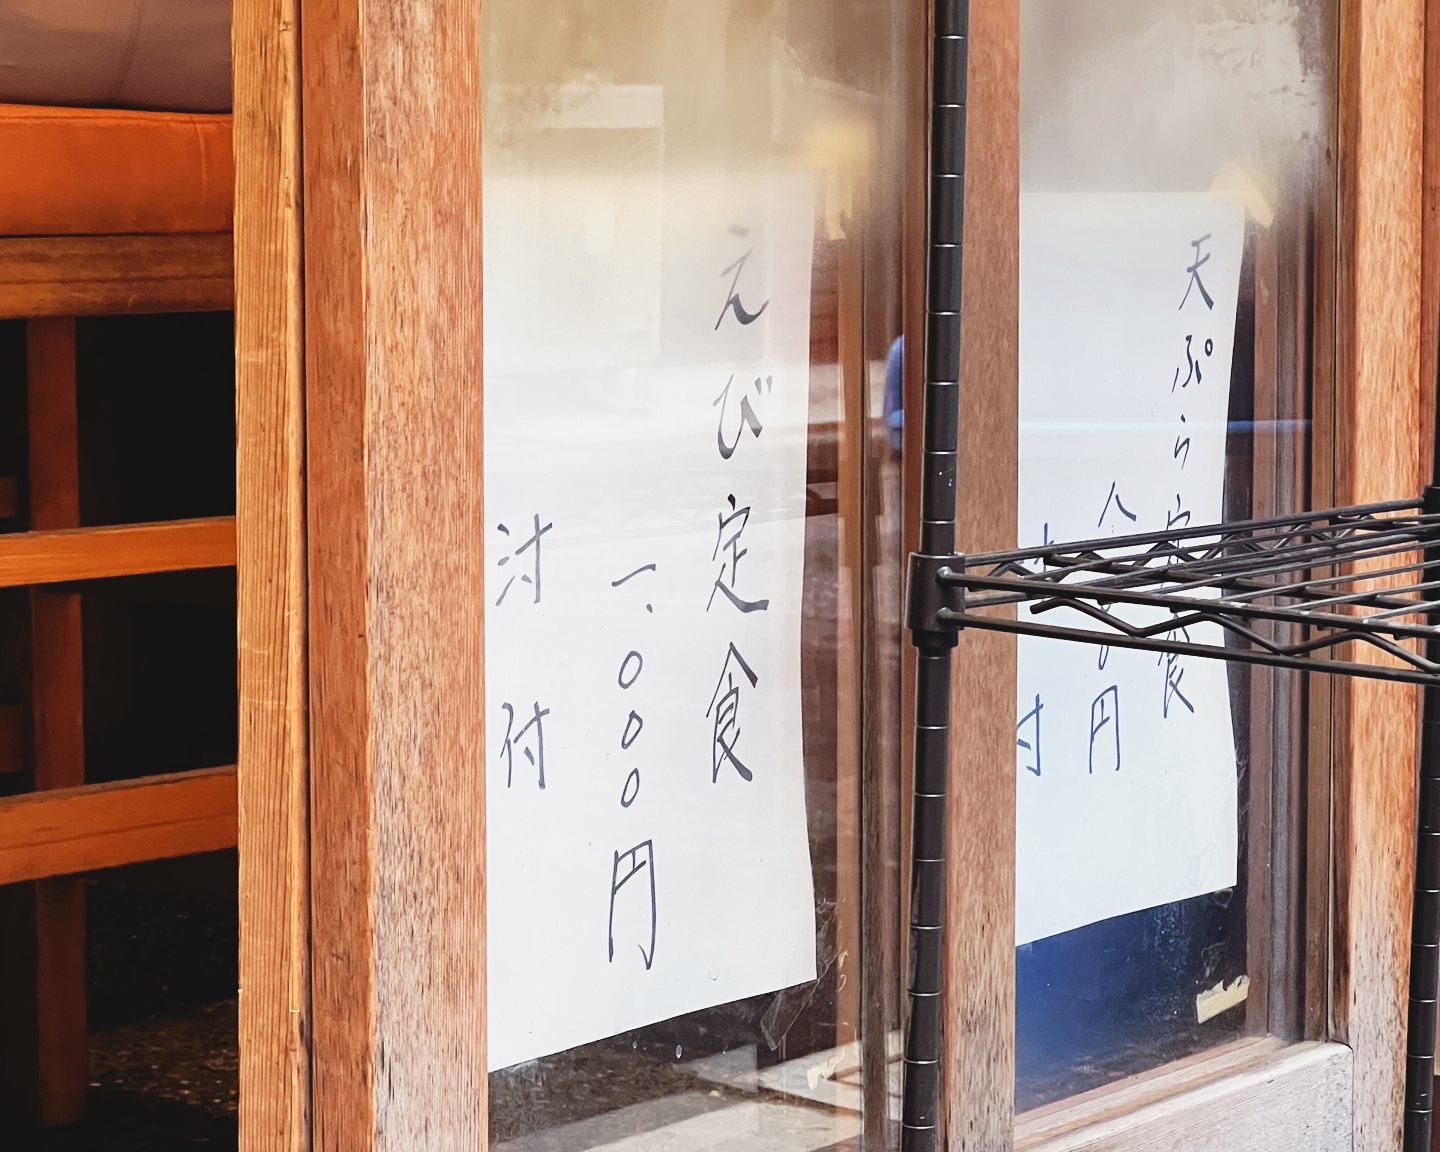 天ぷら定食
八 円
付
えび定食
一、〇〇〇円
汁付